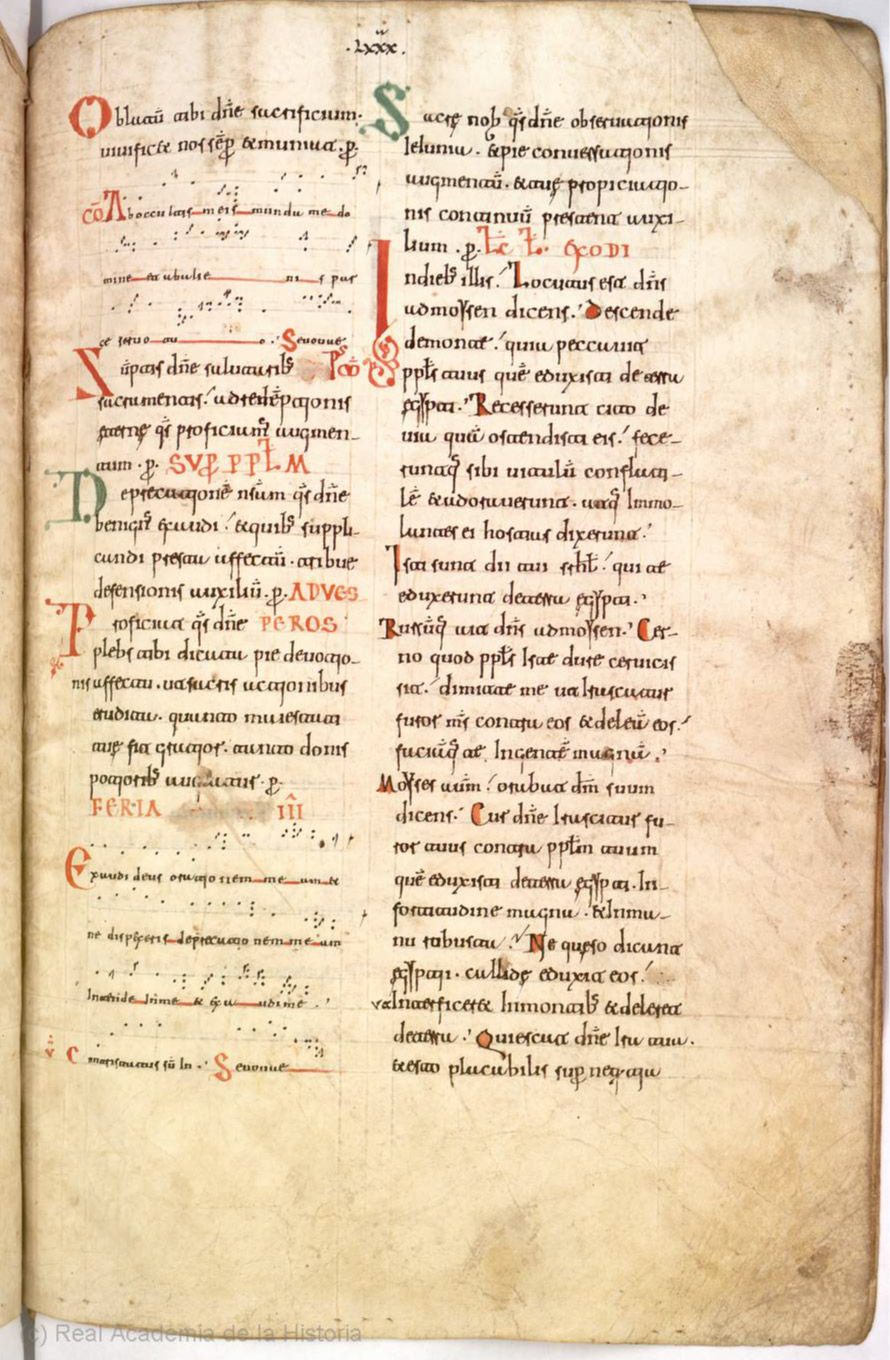 .Lxxx.
Oblatū tibi dn̄e sacrificium.
uiuificet nos sēp &muniat. p.
cō Ab occultis meis munda me do
mine et ab alie ni s par
ce seruo tu o. Seuouae
Sūptis dn̄e saluatrib;
sacramentis. ad redēptionis
eterne qs proficiam; augmen
tum. p. SVP PPLM
Deprecationē nr̄am qs dn̄e
benign; exaudi. &quib; suppli
candi prestas affectū. tribue
defensionis auxiliū. p. ADVES
Proficiat qs dn̄e PEROS
plebs tibi dicata pie deuotio
nis affectu. ut sacris actionibus
erudita. quanto maiestati
tue fit gratior. tanto donis
potiorib; augeatur. p.
FERIA III
Exaudi deus orationem meam &
ne despexeris deprecationem meam
Intende In me & exaudi me.
v C ontristatus sū In. Seuouae
Pꝰ cō Sacre nob qs dn̄e obseruationis
Ieiunia. & pie conuersationis
augmentū. & tue propiciatio
nis continuū prestent auxi
lium. p. Lc L. EXODI
Indieb; illis. Locutus est dn̄s
admoysen dicens. Descende
demonte. quia peccauit
ppl's tuus quē eduxisti deterra
egypti. Recesserunt cito de
uia quā ostendisti eis. fece
runtq; sibi uitulū conflati
lē & adorauerunt. atq; Immo
lantes ei hostias dixerunt.
Isti sunt dii tui isrl̄. qui te
eduxerunt deterra egypti.
Rursūq; ait dn̄s admoysen. Cer
no quod ppl's Iste dure ceruicis
sit. dimitte me ut Irascatur
furor m̄s contra eos & deleā eos.
faciāq; te Ingentē magnā.
Moyses aūm. orabat dm̄ suum
dicens. Cur dn̄e Irascitur fu
ror tuus contra ppl̄m tuum
quē eduxisti deterra egypti. In
fortitudine magna. & Inma
nu robusta. Ne queso dicant
egyptii. callide eduxit eos.
ut Interficeret Inmontib; & deleret
deterra. Quiescat dn̄e Ira tua.
& esto placabilis sup nequitia
(c) Real Academia de la Historia